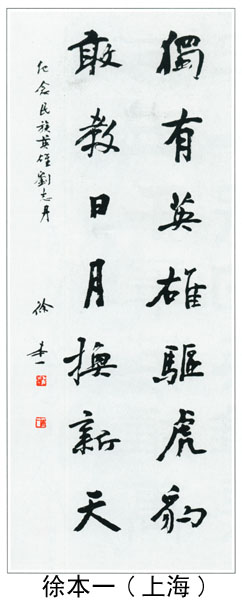 獨有英雄驅虎豹
敢教日月換新天
纪念民族英雄劉志丹
徐本一
徐本一（上海）